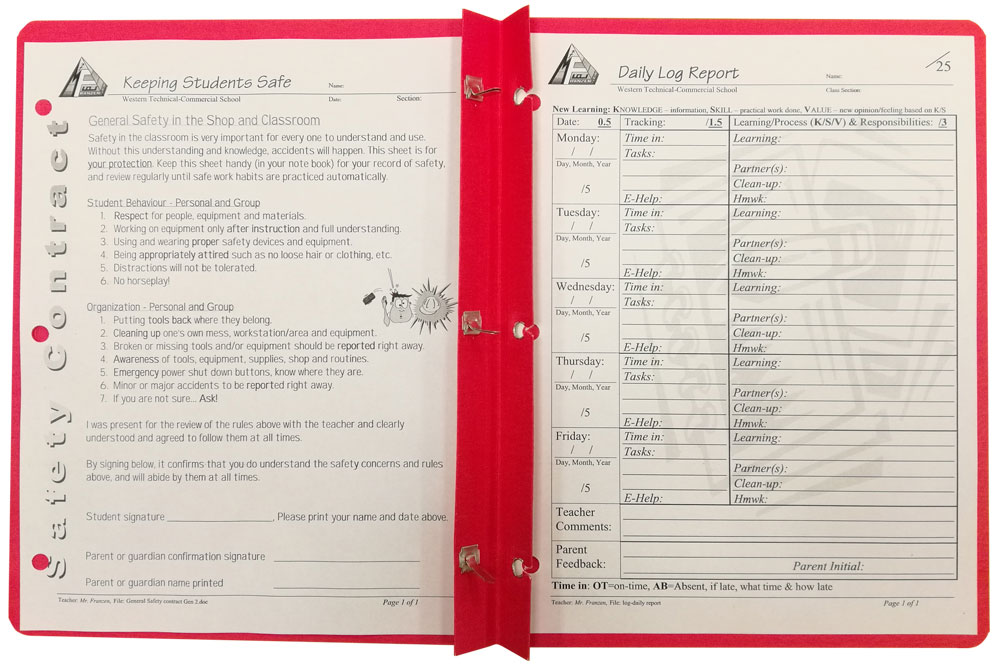 Keeping Students Safe
Name:
Western Technical-Commercial School
Date
Section:
Safety Contract
General Safety in the Shop and Classroom
Safety in the classroom is very important for every one to understand and use.
Without this understanding and knowledge, accidents will happen. This sheet is for
your protection. Keep this sheet handy (in your note book) for your record of safety,
and review regularly until safe work habits are practiced automatically.
Student Behaviour - Personal and Group
1. Respect for people, equipment and materials.
2. Working on equipment only after instruction and full understanding.
3. Using and wearing proper safety devices and equipment.
4. Being appropriately attired such as no loose hair or clothing, etc.
5. Distractions will not be tolerated.
6. No horseplay!
Organization - Personal and Group
1. Putting tools back where they belong.
2. Cleaning up one's own mess, workstation/area and equipment.
3. Broken or missing tools and/or equipment should be reported right away.
4. Awareness of tools, equipment, supplies, shop and routines.
5. Emergency power shut down buttons, know where they are.
6. Minor or major accidents to be reported right away.
7. If you are not sure... Ask!
I was present for the review of the rules above with the teacher and clearly
understood and agreed to follow them at all times.
By signing below, it confirms that you do understand the safety concerns and rules
above, and will abide by them at all times.
Student signature ____________________, Please print your name and date above.
Parent or guardian confirmation signature ____________________
Parent or guardian name printed ____________________
Teacher: Mr. Franzen, File: General Safety contract Gen 2.doc
Page 1 of 1
Daily Log Report
Name:
/25
Western Technical-Commercial School
Class Section:
New Learning: KNOWLEDGE – information, SKILL – practical work done, VALUE – new opinion/feeling based on K/S
Date: 0.5 Tracking: /1.5 Learning/Process (K/S/V) & Responsibilities: /3
Monday: Time in: Learning:
/ / Tasks:
Day, Month, Year Partner(s):
/5 Clean-up:
E-Help: Hmwk:
Tuesday: Time in: Learning:
/ / Tasks:
Day, Month, Year Partner(s):
/5 Clean-up:
E-Help: Hmwk:
Wednesday: Time in: Learning:
/ / Tasks:
Day, Month, Year Partner(s):
/5 Clean-up:
E-Help: Hmwk:
Thursday: Time in: Learning:
/ / Tasks:
Day, Month, Year Partner(s):
/5 Clean-up:
E-Help: Hmwk:
Friday: Time in: Learning:
/ / Tasks:
Day, Month, Year Partner(s):
/5 Clean-up:
E-Help: Hmwk:
Teacher
Comments:
Parent
Feedback: Parent Initial:
Time in: OT=on-time, AB=Absent, if late, what time & how late
Teacher: Mr. Franzen, File: log-daily report
Page 1 of 1